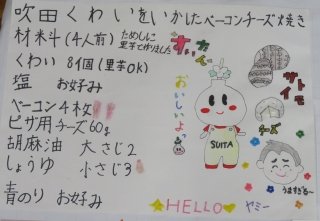 吹田くわいをいかたベーコンチーズ焼き
材料(4人前)
ためしに
里芋で作りました
くわい 8個(里芋OK)
塩 お好み
ベーコン4枚
ピザ用チーズ60g
胡麻油 大さじ2
しょうゆ 小さじ3
青のり お好み
すいたん
おいしいよっ
SUITA
サトイモ
チーズ
うますぎる〜
HELLO
ヤミー